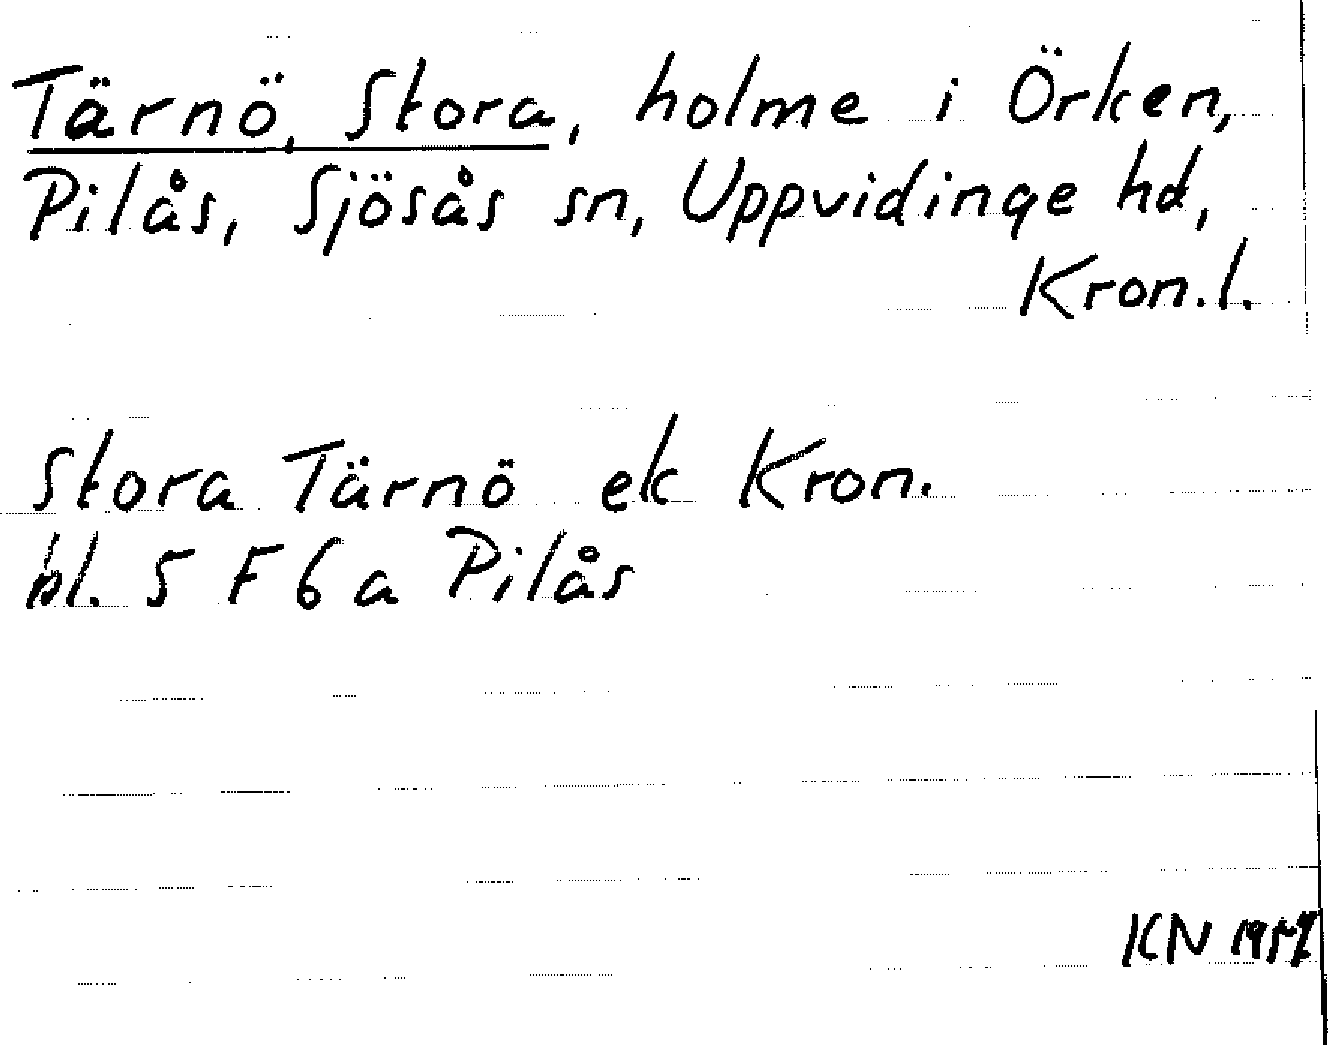 Tärnö, Stora, holme i Örken,
Pilås, Sjösås sn, Uppvidinge hd,
Kron.l.
Stora Tärnö ek Kron.
bl. 5 F 6 a Pilås
KN